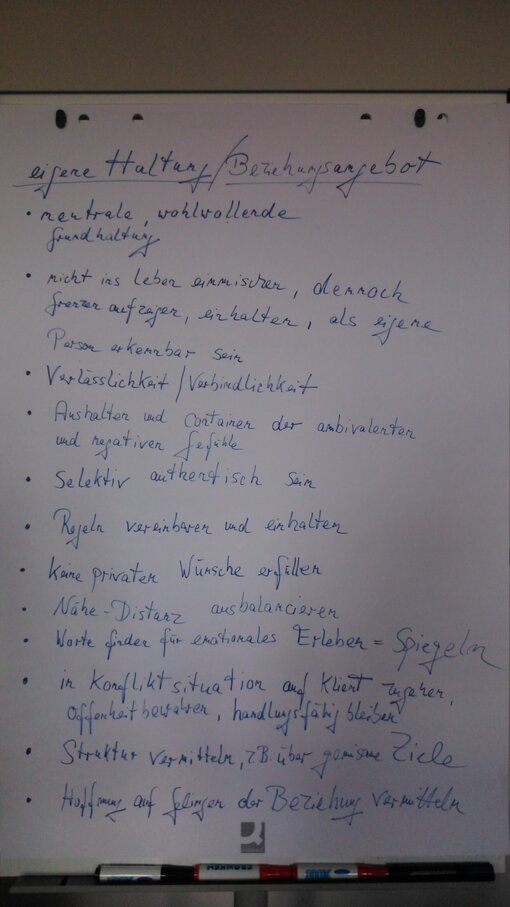 eigene Haltung/Beziehungsangebot
• neutrale, wohlwollende
Grundhaltung
• nicht ins Leben einmischen, dennoch
Grenzen aufzeigen, einhalten, als eigene
Person erkennbar sein
• Verlässlichkeit/Verbindlichkeit
• Aushalten und Containen der ambivalenten
und negativen Gefühle
• Selektiv authentisch sein
• Regeln vereinbaren und einhalten
• Keine privaten Wünsche erfüllen
• Nähe-Distanz ausbalancieren
• Worte finden für emotionales Erleben = Spiegeln
• in Konfliktsituation auf Klient zugehen,
Offenheit bewahren, handlungsfähig bleiben
• Struktur vermitteln, z.B. über gemeinsame Ziele
• Hoffnung auf Gelingen der Beziehung vermitteln
FRANKEN